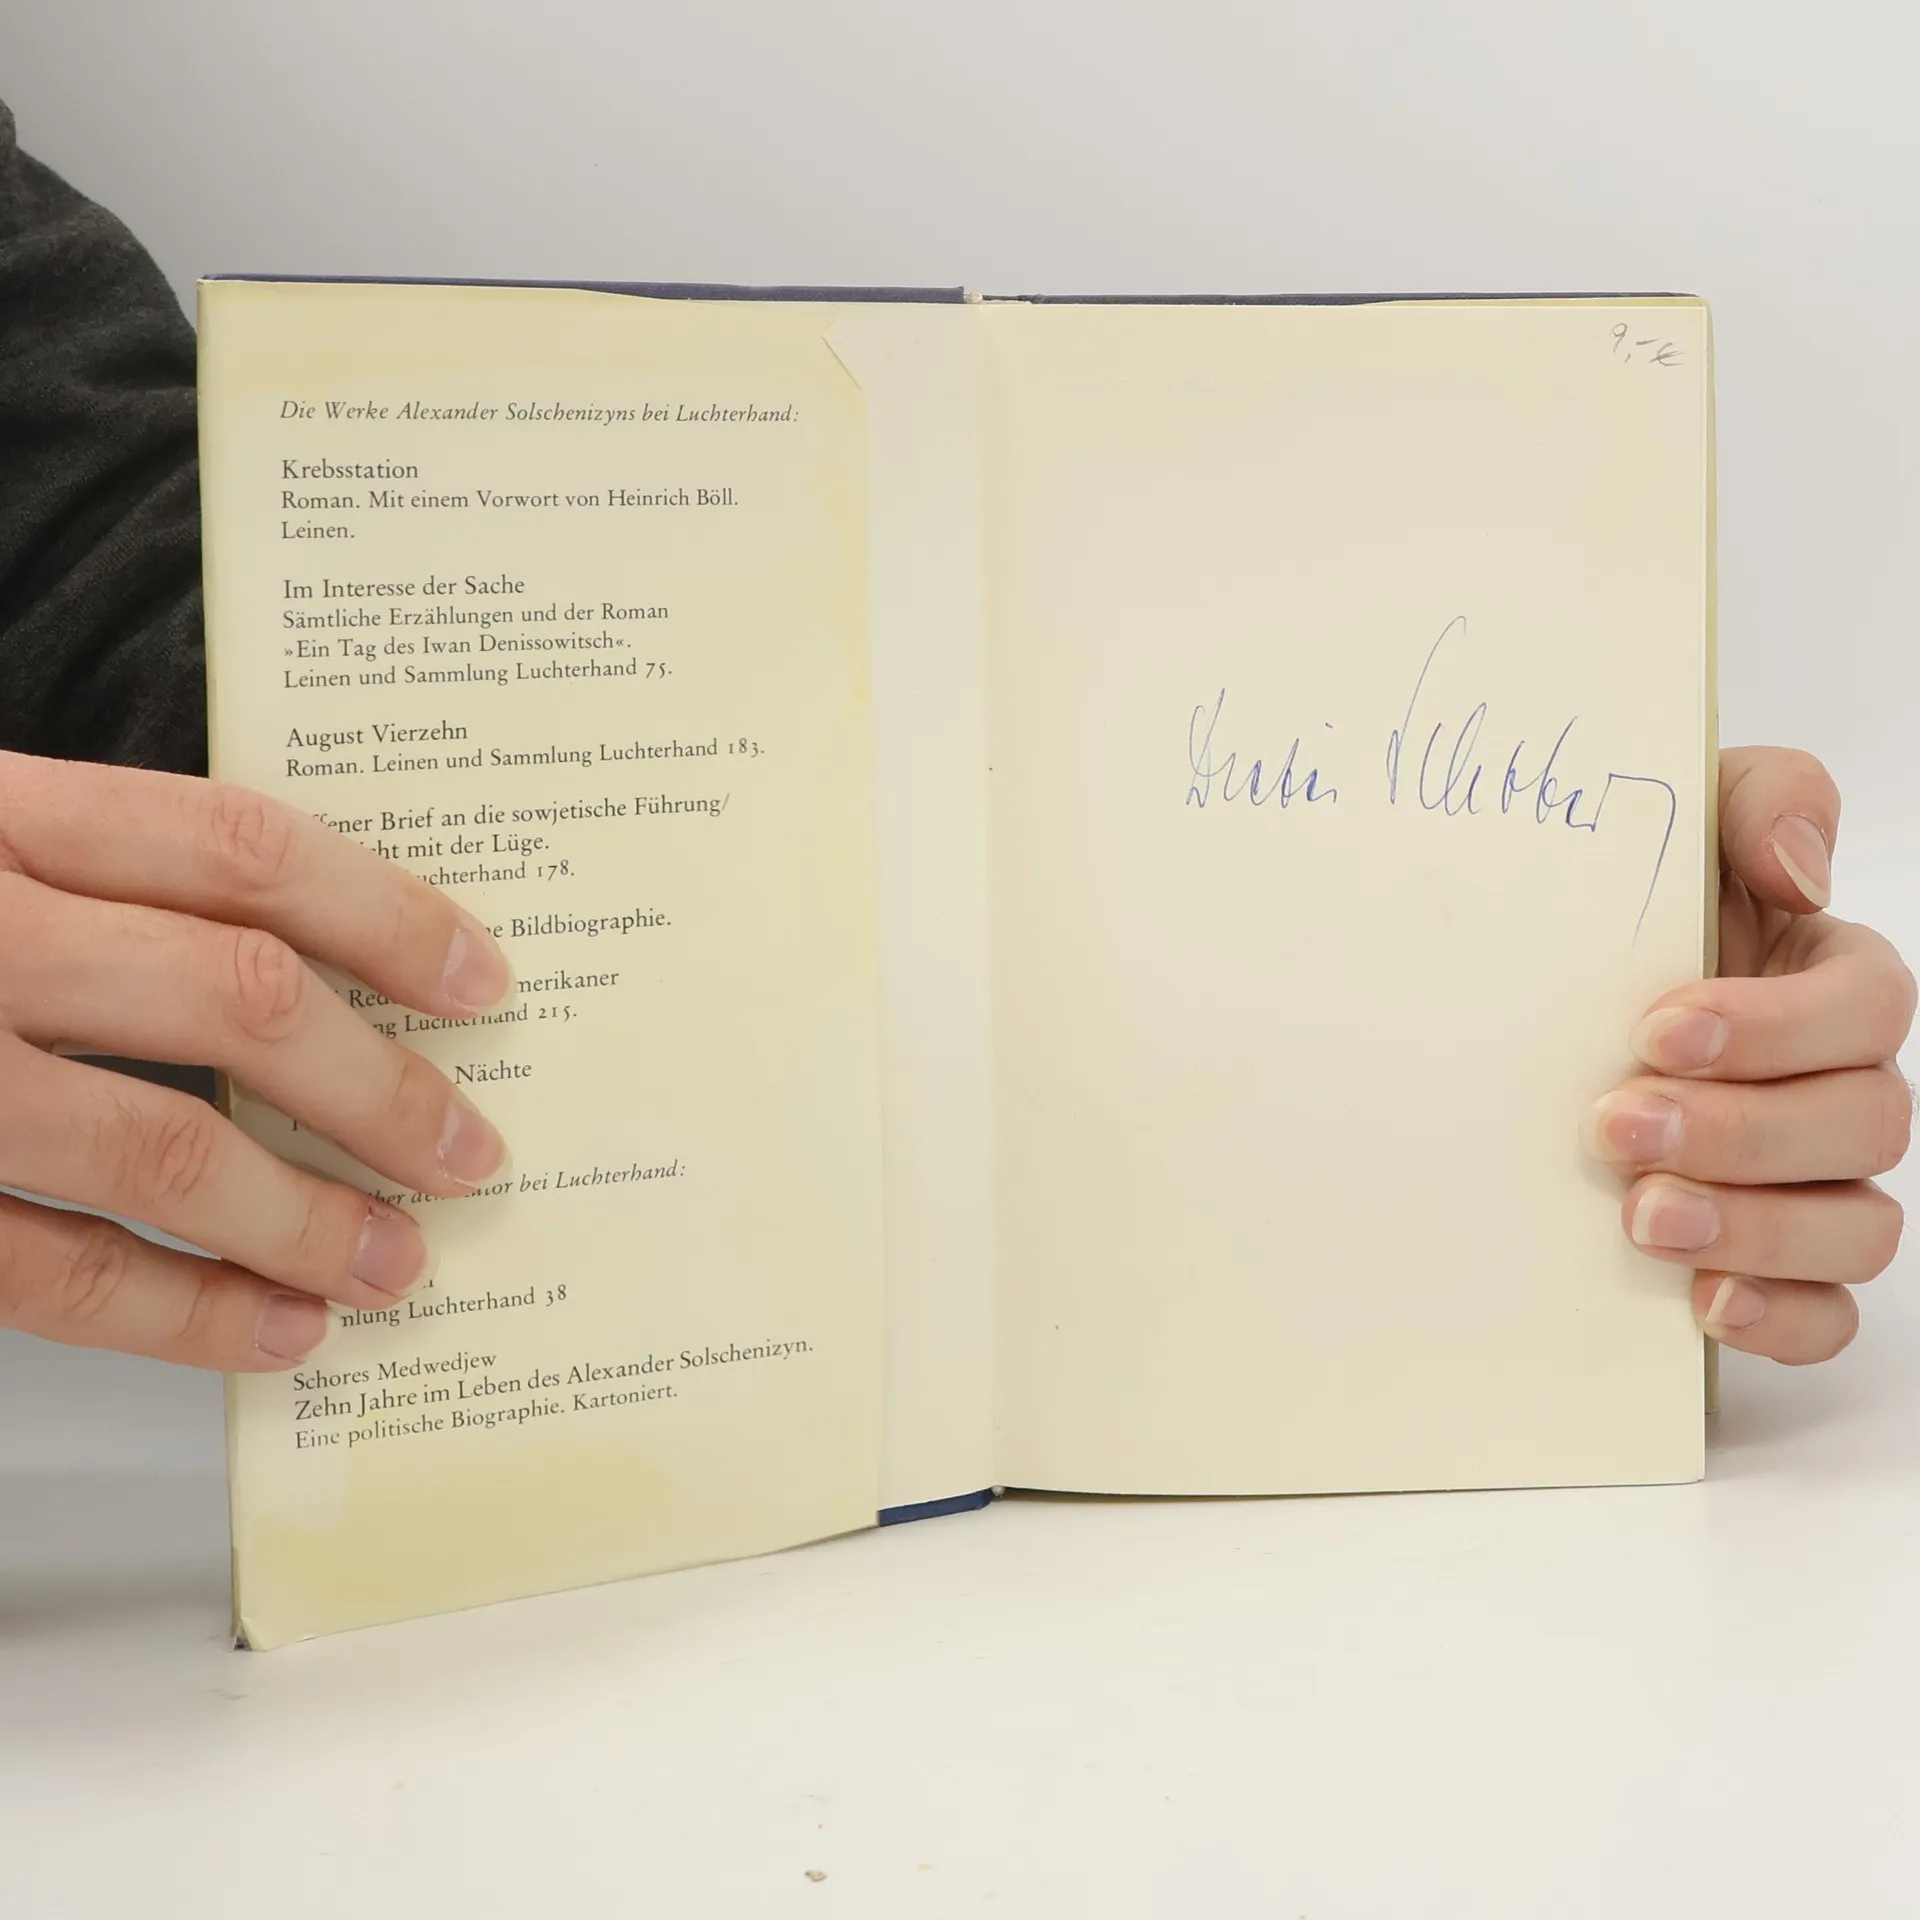 Die Werke Alexander Solschenizyns bei Luchterhand:
Krebsstation
Roman. Mit einem Vorwort von Heinrich Böll.
Leinen.
Im Interesse der Sache
Sämtliche Erzählungen und der Roman
»Ein Tag des Iwan Denissowitsch«.
Leinen und Sammlung Luchterhand 75.
August Vierzehn
Roman. Leinen und Sammlung Luchterhand 183.
Brief an die sowjetische Führung/
mit der Lüge.
178.
Bildbiographie.
Luchterhand 215.
Nächte
bei Luchterhand:
Luchterhand 38
Schores Medwedjew
Zehn Jahre im Leben des Alexander Solschenizyn.
Eine politische Biographie. Kartoniert.
9,- €